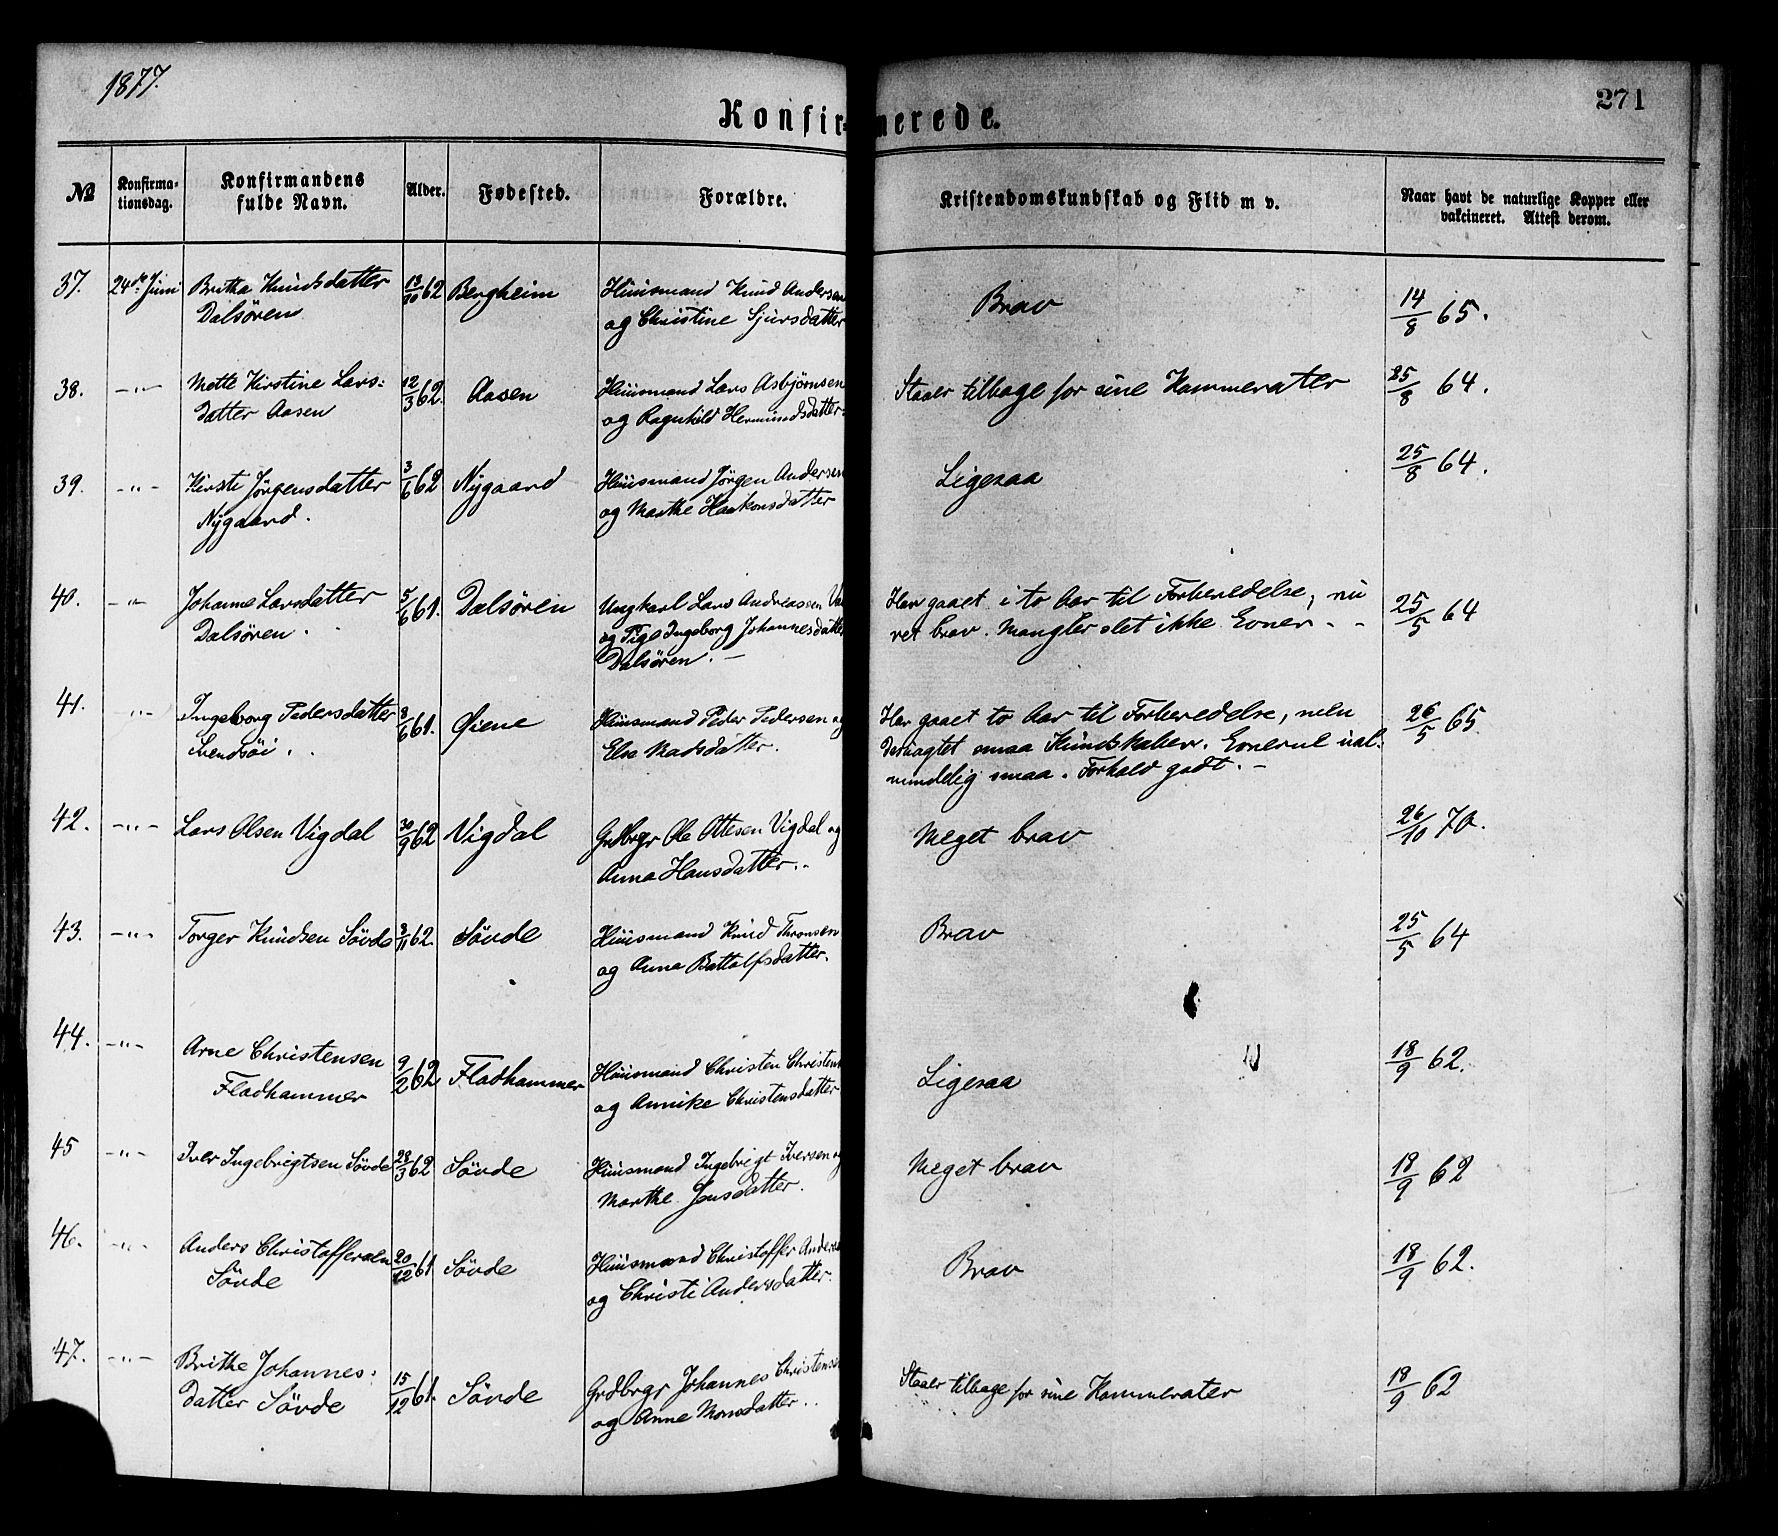 1877.
271
Konfirmerede.
№
Konfirma-
tionsdag.
Konfirmandens
fulde Navn.
Alder.
Fødested.
Forældre.
Kristendomskundskab og Flid m v.
Naar havt de naturlige Kopper eller
vakcineret. Attest derom.
37. 24de Juni Britha Knudsdatter 13/10 62 Bergheim Huusmand Knud Andersen Brav 14/8 65.
Dalsören og Christine Sjursdatter
38. -"- Mette Kirstine Lars- 12/3 62. Aasen Huusmand Lars Asbjörnsen Staaer tilbage for sine Kammerater 25/8 64.
datter Aasen og Ragnhild Hermundsdatter.
39. -"- Kirsti Jörgensdatter 3/6 62 Nygaard Huusmand Jörgen Andersen Ligesaa 25/8 64.
Nygaard. og Marthe Haakonsdatter
40. -"- Johanne Larsdatter 5/6 61. Dalsören Ungkarl Lars Andreassen Har gaaet i to Aar til Forberedelse, nu 25/5 64
Dalsören. og Pige Ingeborg Johannesdatter ret brav. Mangler slet ikke Evner. - -
Dalsören. -
41. -"- Ingeborg Pedersdatter 8/6 61. Øiene Huusmand Peder Pedersen og Har gaaet to Aar til Forberedelse, men 26/5 65.
Svendsöi. Else Madsdatter. desuagtet smaa Kundskaber. Evnerne ual-
mindelig smaa. Forhold godt. -
42. -"- Lars Olsen Vigdal 30/9 62 Vigdal Grdbrgr Ole Ottesen Vigdal og Meget brav 26/10 70.
Anna Hansdatter. -
43. -"- Torger Knudsen Sövde 3/11 62. Sövde Huusmand Knud Thronsen Brav 25/5 64
og Anna Battolfsdatter.
44. -"- Arne Christensen 9/2 62 Fladhammer Huusmand Christen Christens Ligesaa 18/9 62.
Fladhammer og Annike Christensdatter
45 -"- Iver Ingebrigtsen Sövde 28/3 62 Sövde Huusmand Ingebrigt Iversen og Meget brav 18/9 62
Marthe Jensdatter.
46. -"- Anders Christoffersen 20/12 61 Sövde Huusmand Christoffer Anders Brav 18/9 62.
Sövde og Christi Andersdatter.
47. -"- Brithe Johannes- 15/12 61. Sövde Grdbrgr Johannes Christense Staaer tilbage for sine Kammerater 18/9 62
datter Sövde og Anne Monsdatter. .